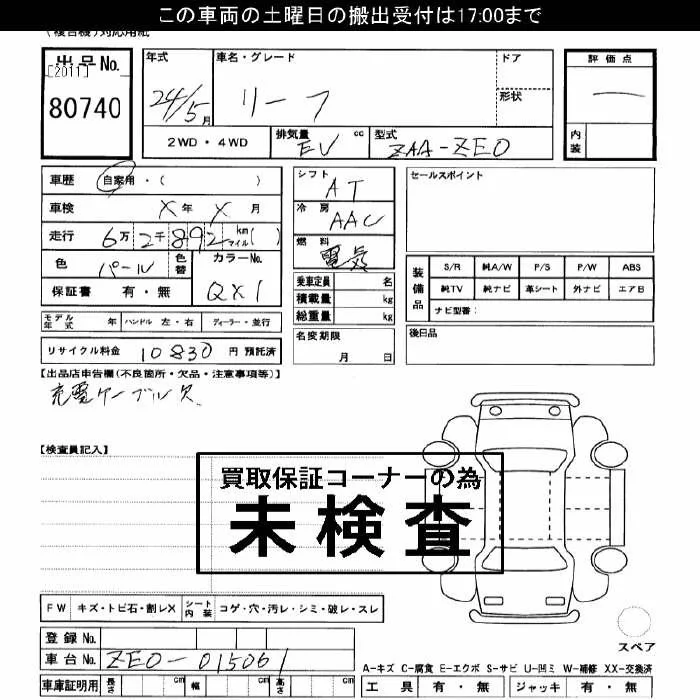 この車両の土曜日の搬出受付は17:00まで
(複合機)対応用紙
出品No. [2011] 80740
年式 24/5月
車名・グレード リーフ
ドア
形状
評価点 —
内装
2WD・4WD
排気量 EV cc
型式 ZAA-ZE0
車歴 自家用・( )
車検 X年 X月
走行 6万2千892 km マイル( )
色 パール 色替 カラーNo. QX1
保証書 有・無
モデル年式 年 ハンドル 左・右 ディーラー・並行
リサイクル料金 10830 円 預託済
シフト AT
冷房 AAC
燃料 電気
乗車定員 名
積載量 kg
総重量 kg
名変期限 月 日
セールスポイント
装備品 S/R 純A/W P/S P/W ABS
純TV 純ナビ 革シート 外ナビ エアB
ナビ型番:
後日品
【出品店申告欄(不良箇所・欠品・注意事項等)】
充電ケーブル欠
【検査員記入】
買取保証コーナーの為
未検査
FW キズ・トビ石・割レX シート内装 コゲ・穴・汚レ・シミ・破レ・スレ
登録No.
車台No. ZE0-015061
車庫証明用 長さ cm 幅 cm 高さ cm
スペア
A-キズ C-腐食 E-エクボ S-サビ U-凹ミ W-補修 XX-交換済
工具 有・無 ジャッキ 有・無